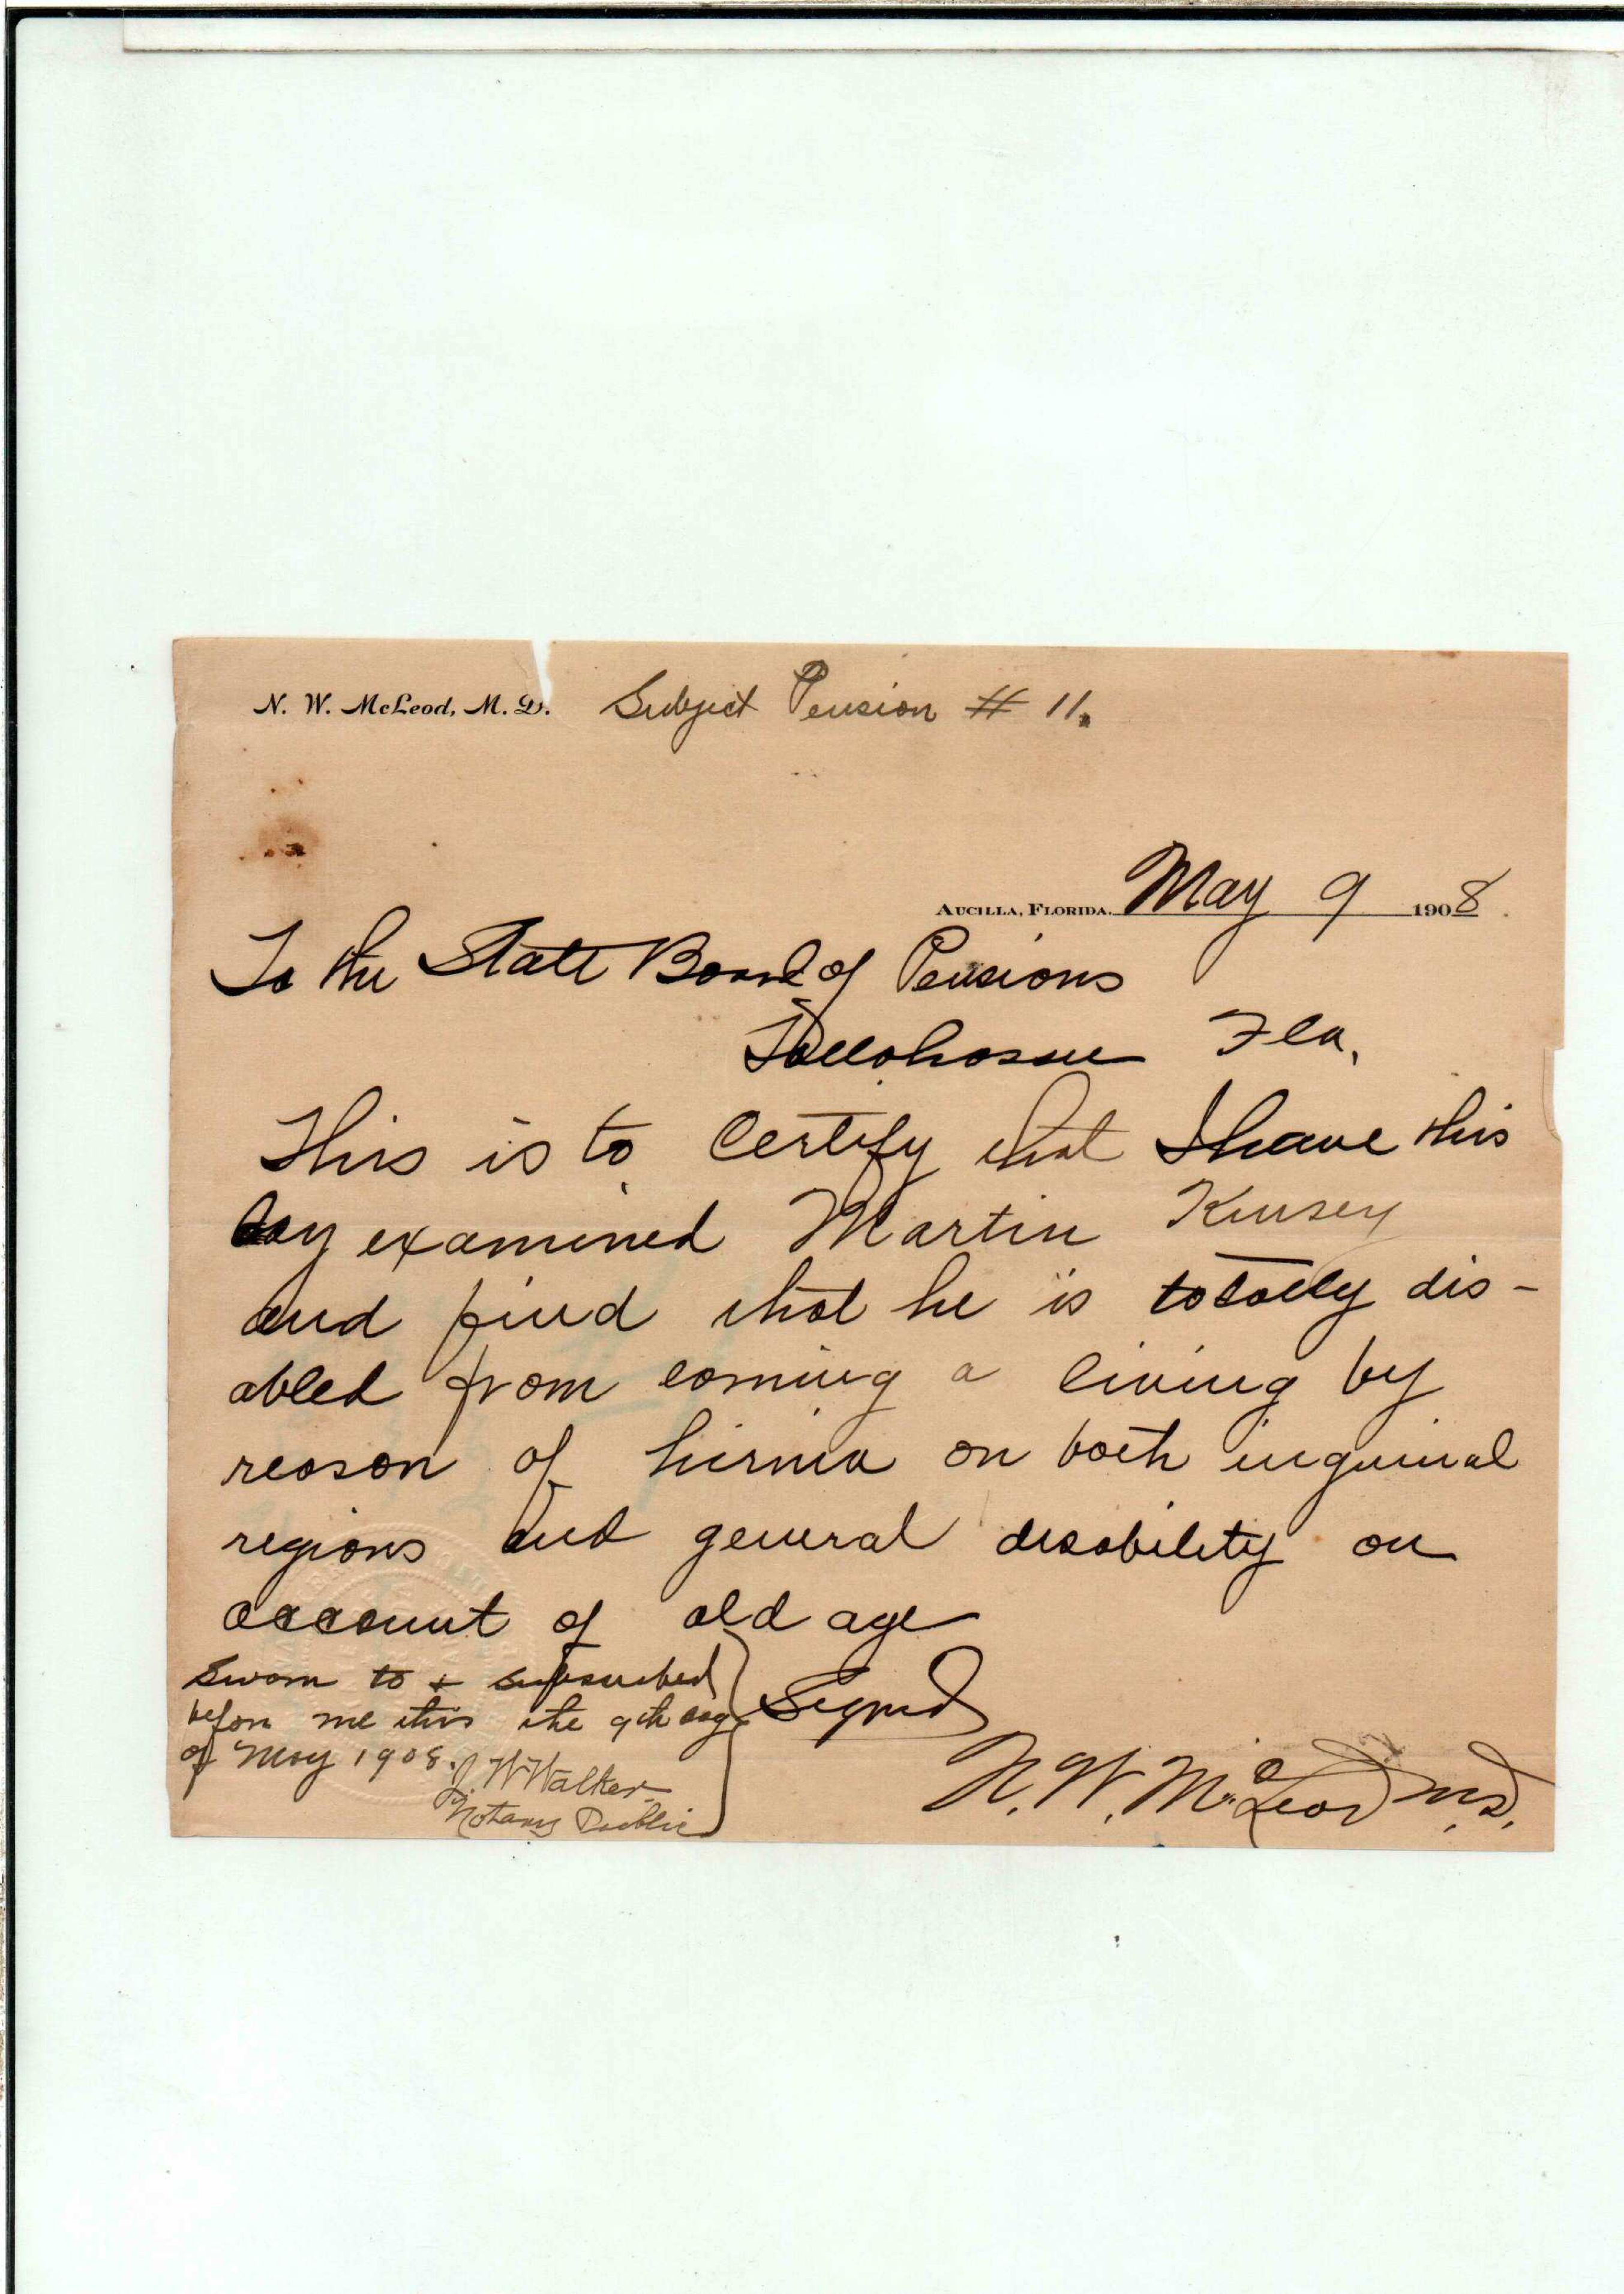 N. W. McLeod, M. D. Subject Pension # 11.
AUCILLA, FLORIDA. May 9 1908
To the State Board of Pensions
Tallahassee Fla.
This is to Certify that I have this
day examined Martin Kinsey
and find that he is totally dis-
abled from earning a living by
reason of hirnia on both inguinal
regions and general disability on
account of old age
Sworn to & subscribed
before me this the 9th day
of May 1908.
J. W Walker
Notary Public
Signed
N. W. McLeod M.D.